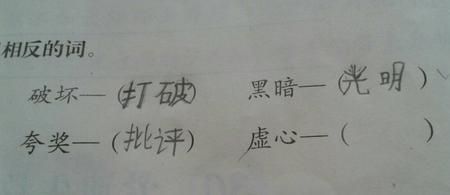 相反的词。
破坏—(打破) 黑暗—(光明)
夸奖—(批评) 虚心—( )